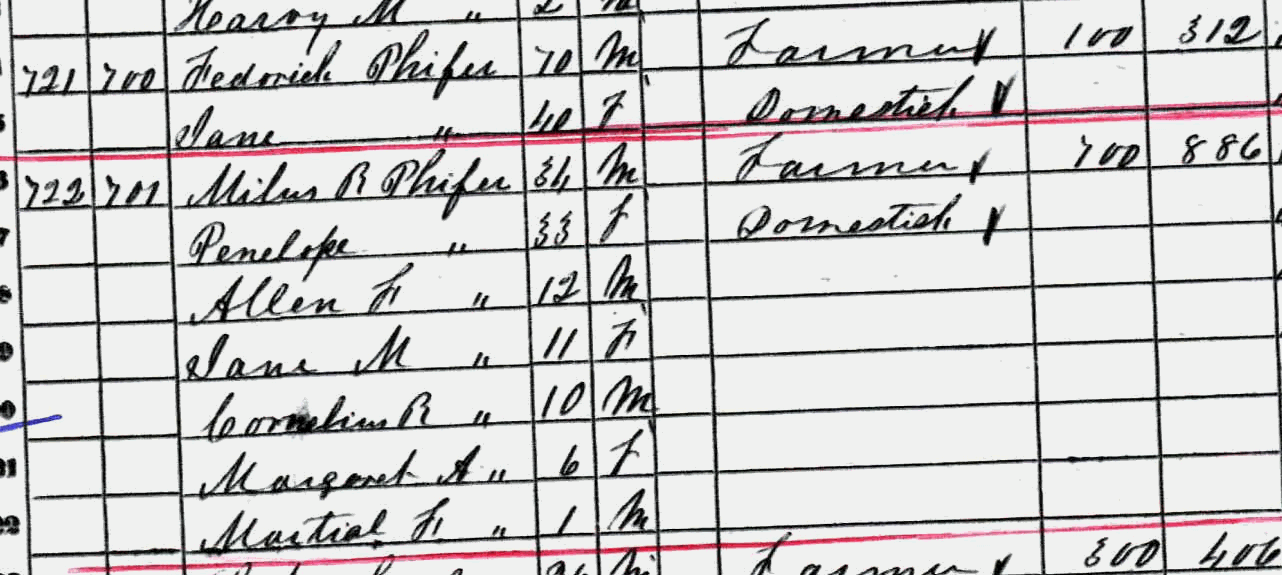 Hearvy M " 2 M
721 700 Fedorick Phifer 70 M Farmer 100 312
Jane " 40 F Domestick
722 701 Milus R Phifer 34 M Farmer 700 886
Penelope " 33 F Domestick
Allen F " 12 M
Jane M " 11 F
Cornelius R " 10 M
Margaret A " 6 F
Martial F " 1 M
Farmer 300 406